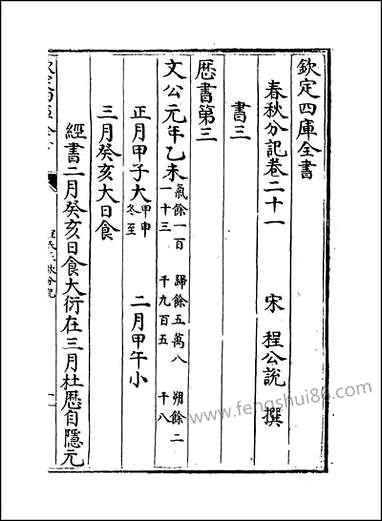 欽定四庫全書
春秋分記卷二十一
宋 程公說 撰
書三
厯書第三
文公元年乙未氣餘一百一十三 歸餘五萬八千九百五 朔餘二千八
正月甲子大甲申冬至 二月甲午小
三月癸亥大日食
經書二月癸亥日食大衍在三月杜厯自隱元
www.fengshui86.com